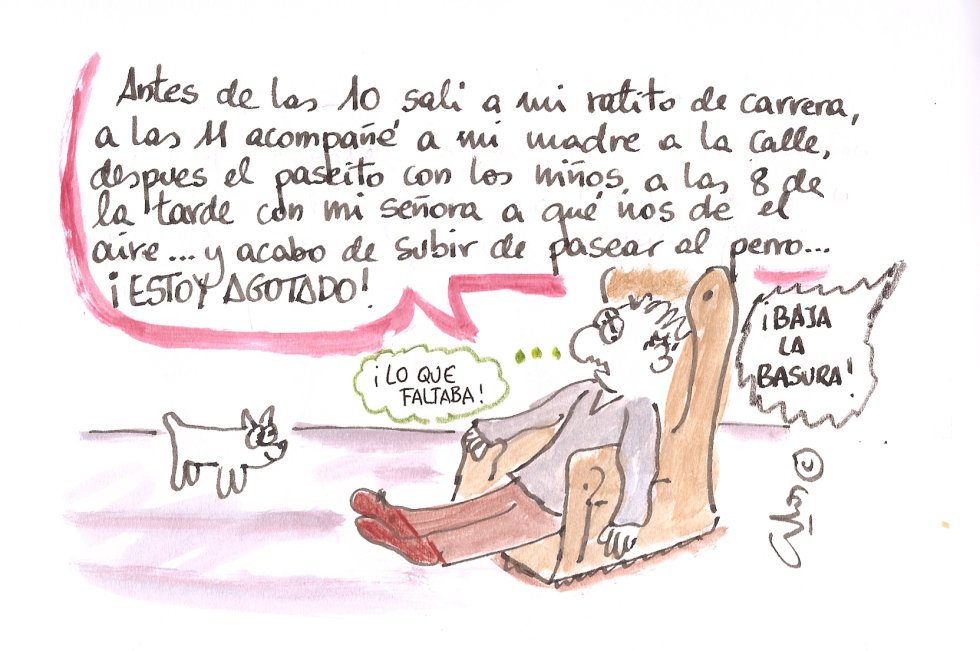 Antes de las 10 sali a mi ratito de carrera,
a las 11 acompañé a mi madre a la calle,
despues el paseito con los niños, a las 8 de
la tarde con mi señora a que nos de el
aire... y acabo de subir de pasear al perro...
¡ESTOY AGOTADO!
¡LO QUE
FALTABA!
¡BAJA
LA
BASURA!
©